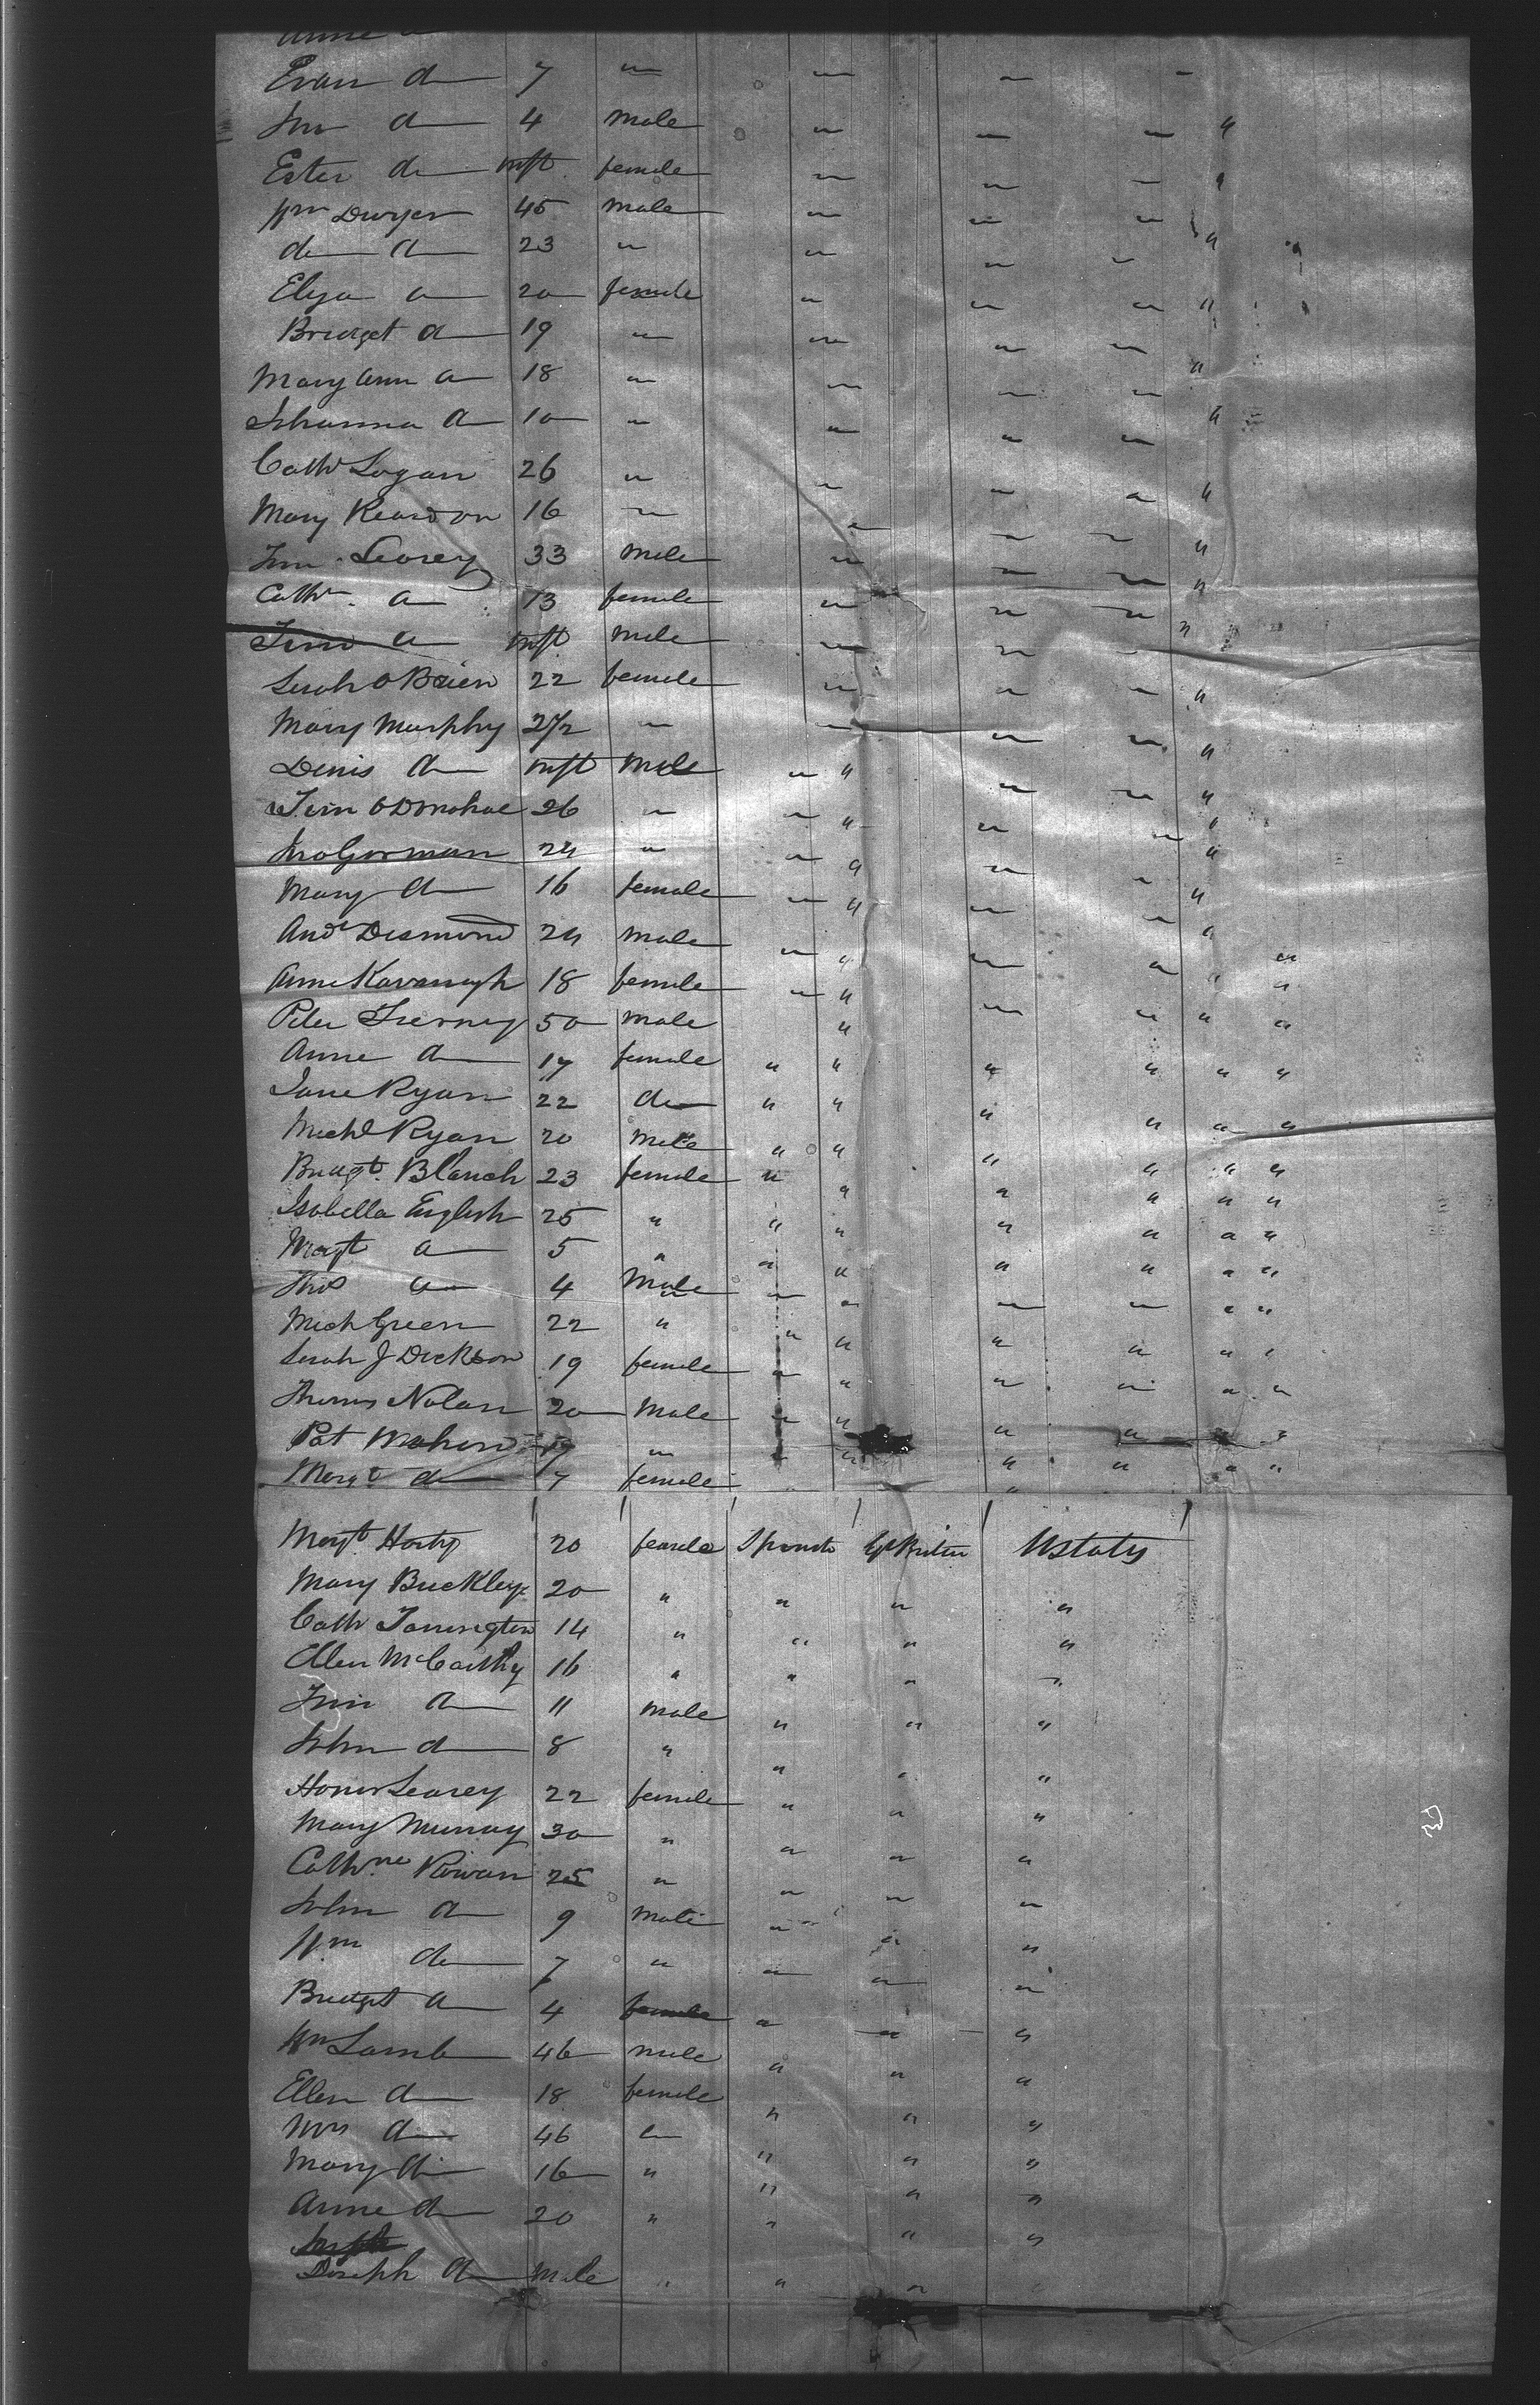 Anne do
Evan do 7 " " " "
Jno do 4 male " " " "
Ester do inft female " " " "
Wm Dwyer 45 male " " "
do do 23 " " " " "
Eliza do 20 female " " " "
Bridget do 19 " " " "
Mary Ann do 18 " " " " "
Johanna do 10 " " " " "
Cathr Logan 26 " " " " "
Mary Reardon 16 " " " " "
Learey 33 Male " " " "
Cathr. do 13 female " " " "
do inft Male " "
Sarah O Brien 22 female " " " "
Mary Murphy " " " " "
Denis do inft Male " " " " "
O Donohoe 26 " " " " " "
Jno Gorman 24 " " " " " "
Mary do 16 female " " " " "
Andw Desmond 24 male " " " " " "
Anne Kavanagh 18 female " " " " " "
Peter Tierney 50 male " " " "
Anne do 17 female " " " " " "
Jane Ryan 22 do " " " " " "
Michl Ryan 20 Male " " " " " "
Bridgt. Blanch 23 female " " " " " "
Isabella English 25 " " " " " " "
Margt do 5 " " " " " " "
Thos do 4 Male " " " " " "
Mich Green 22 " " " " " " "
Sarah J Dickson 19 female " " " " " "
Thomas Nolan 20 Male " " " " " "
Pat Mahon 17 " " " " " " "
Margt do 7 female
Margt Harty 20 female Spinster Gt Britain U States
Mary Buckley 20 " " " "
Cath 14 " " " "
Ellen McCarthy 16 " " " "
do 11 male " " "
John do 8 " " " "
Honor Learey 22 female " " "
Mary Murray 30 " " " "
Cathne Rowan 25 " " " "
John do 9 Male " " "
Wm do 7 " " " "
Bridget do 4 female " " "
Wm Lamb 46 male " " "
Ellen do 18 female " " "
Mrs do 46 " " "
Mary do 16 " " " "
Anne do 20 " " " "
Joseph
Joseph do Male " " "